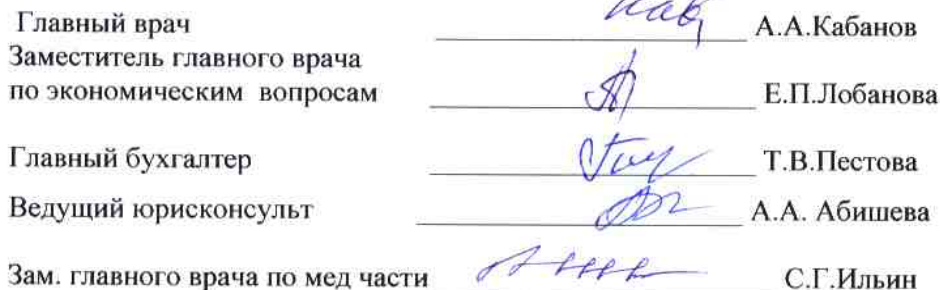 Главный врач А.А.Кабанов
Заместитель главного врача
по экономическим вопросам Е.П.Лобанова
Главный бухгалтер Т.В.Пестова
Ведущий юрисконсульт А.А. Абишева
Зам. главного врача по мед части С.Г.Ильин